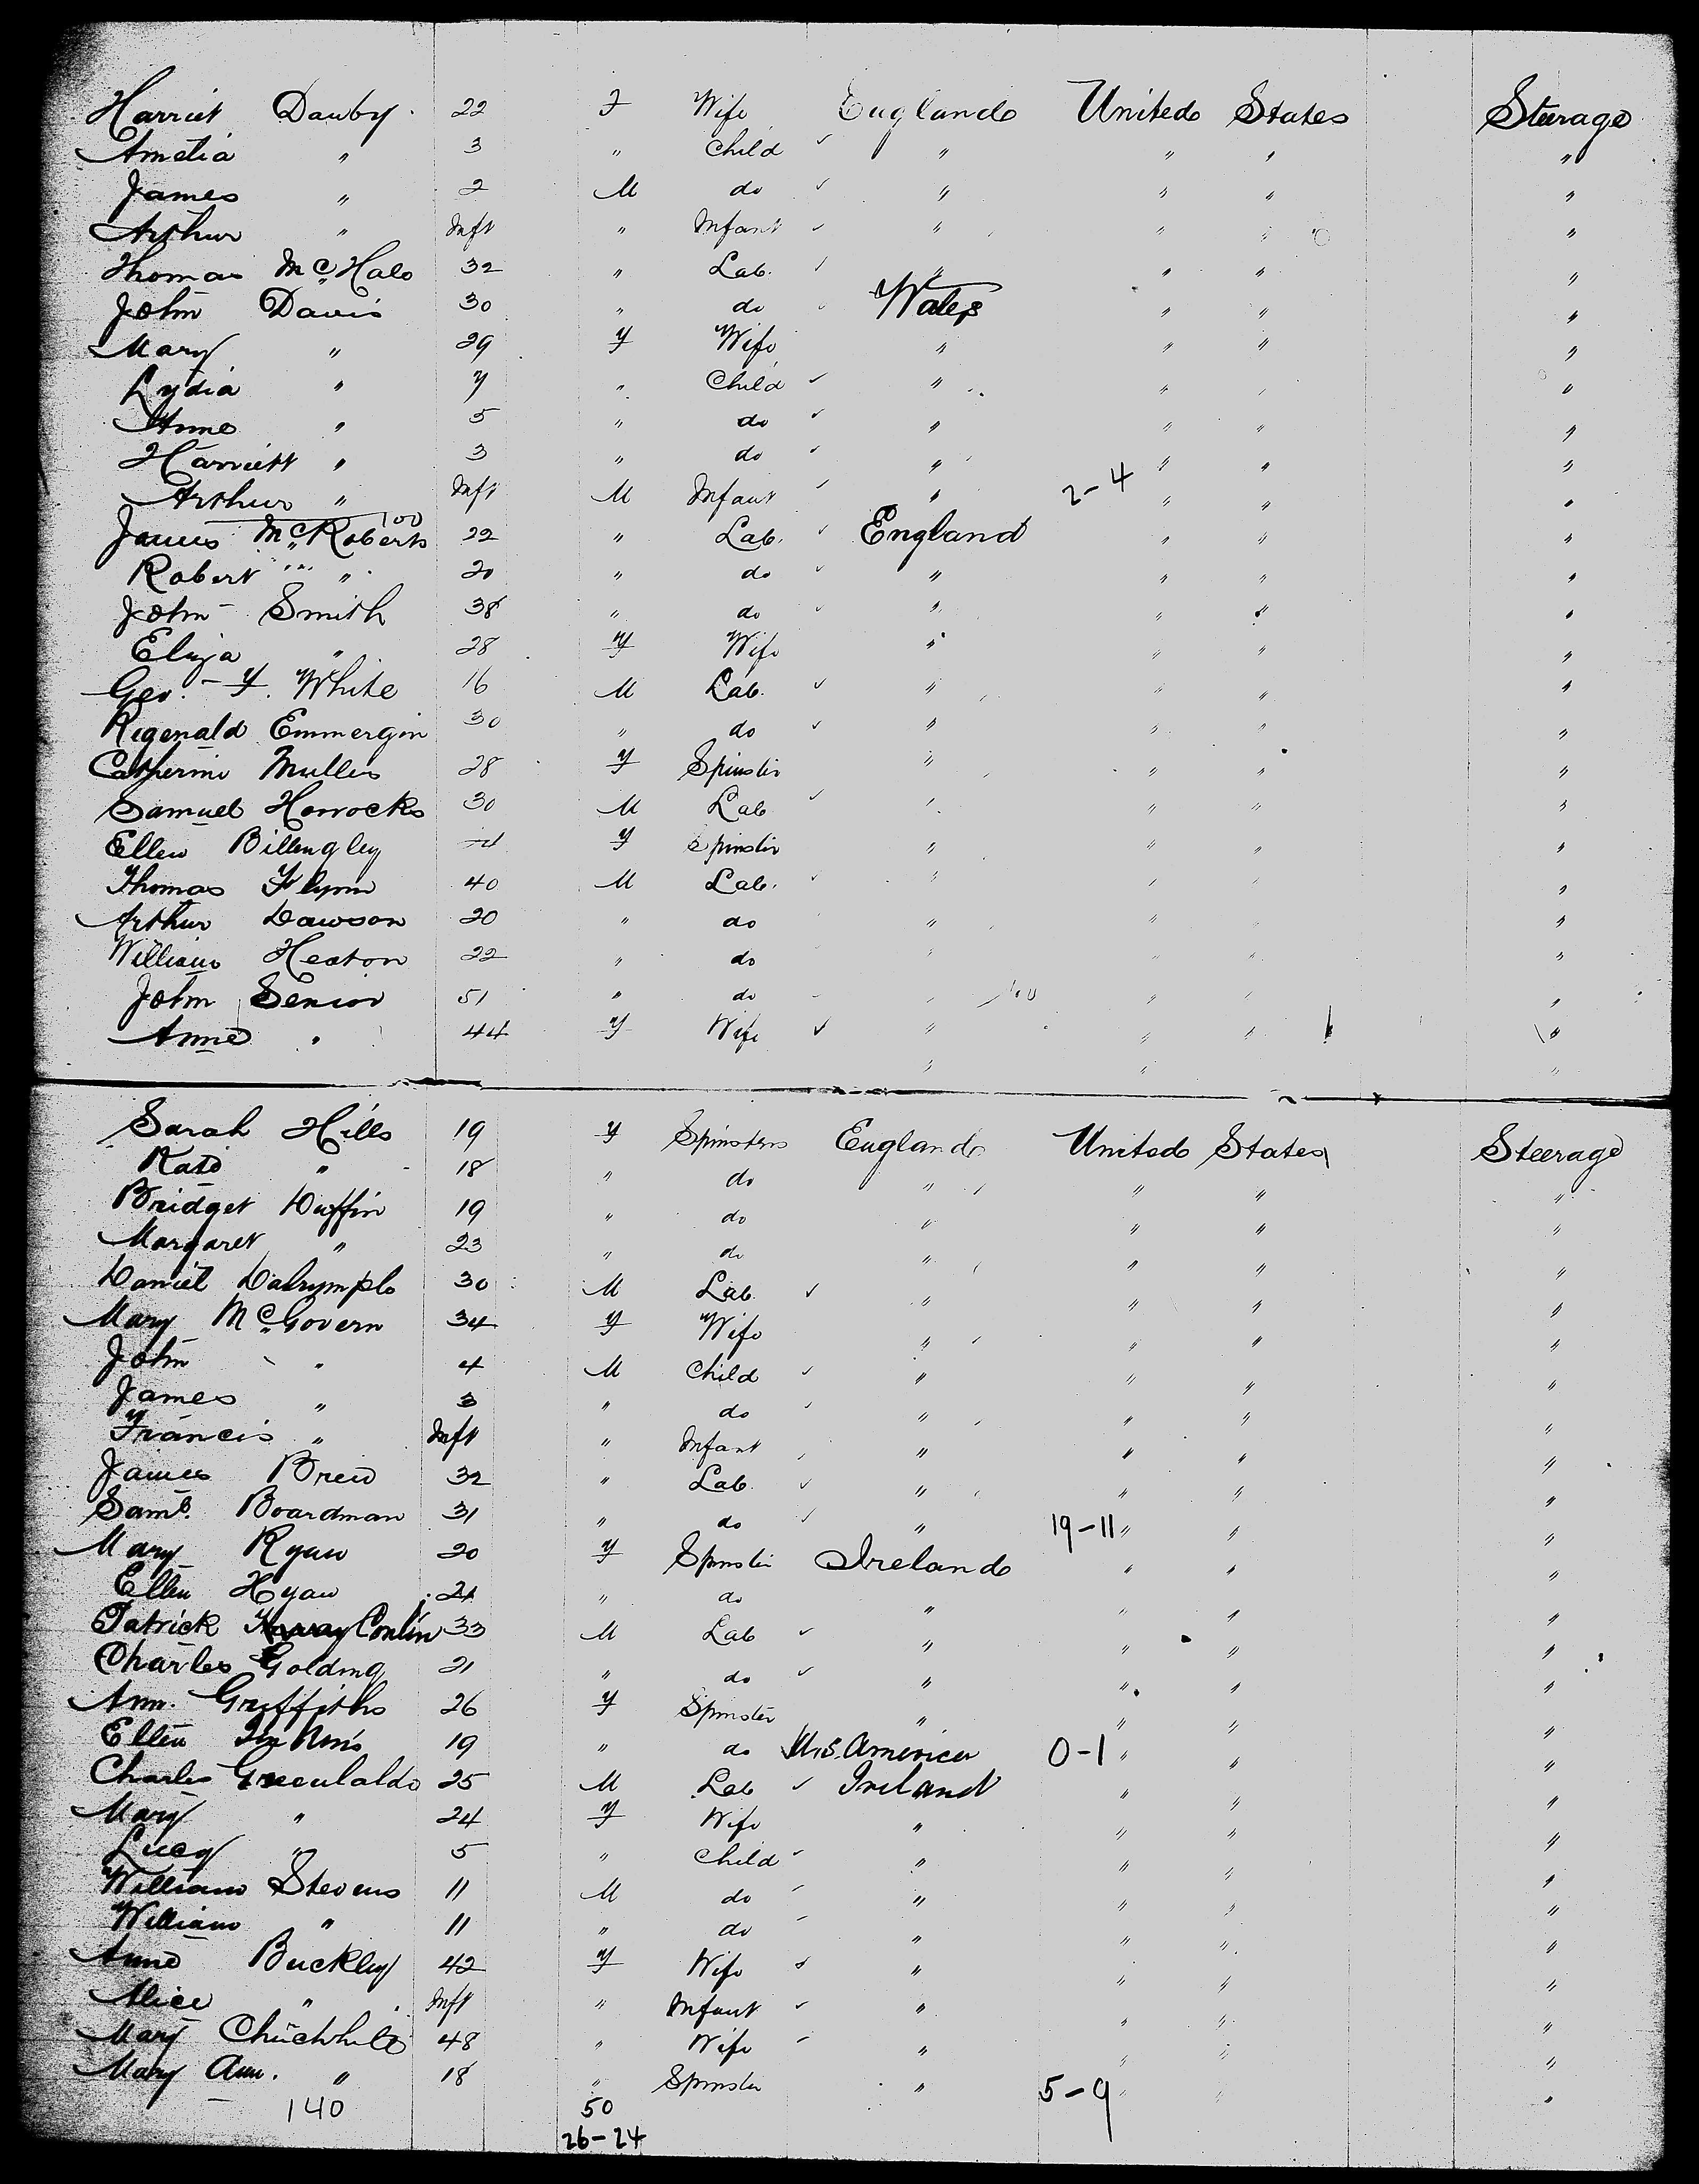 Harriet Danby 22 F Wife England United States Steerage
Amelia " 3 " Child " " " "
James " 2 M do " " " "
Arthur " Inft " Infant " " " "
Thomas McHale 32 " Lab. " " " "
John Davis 30 " do Wales " " "
Mary " 29 F Wife " " " "
Lydia " 7 " Child " " " "
Anne " 5 " do " " " "
Harriett " 3 " do " " " "
Arthur " Inft M Infant " 2-4 " " "
James McRoberts 22 " Lab. England " " "
Robert " " 20 " do " " " "
John Smith 38 " do " " " "
Eliza " 28 F Wife " " " "
Geo. F. White 16 M Lab. " " " "
Rigenald Emmergin 30 " do " " " "
Catherine Mullis 28 F Spinster " " " "
Samuel Horrocks 30 M Lab " " " "
Ellen Billingley F Spinster " " " "
Thomas Flynn 40 M Lab. " " " "
Arthur Dawson 20 " do " " " "
William Heaton 22 " do " " " "
John Senior 51 " do " " " "
Anne " 44 F Wife " " " "
" "
Sarah Hills 19 F Spinsters England United States Steerage
Kate " 18 " do " " " "
Bridget Duffin 19 " do " " " "
Margaret " 23 " do " " " "
Daniel Dalrymple 30 M Lab. " " " "
Mary McGovern 34 F Wife " " " "
John " 4 M Child " " " "
James " 3 " do " " " "
Francis " Inft " Infant " " " "
James Brew 32 " Lab. " " " "
Saml. Boardman 31 " do " 19-11 " " "
Mary Ryan 20 F Spinster Ireland " " "
Ellen Hyan 21 " do " " " "
Patrick Conlin 33 M Lab " " " "
Charles Golding 21 " do " " " "
Ann. Griffiths 26 F Spinster " " " "
Ellen 19 " do U.S. America 0-1 " " "
Charles 25 M Lab Ireland " " "
Mary " 24 F Wife " " " "
Lucy " 5 " Child " " " "
William Stevens 11 M do " " " "
William " 11 " do " " " "
Anne Buckley 42 F Wife " " " "
Alice " Inft " Infant " " " "
Mary 48 " Wife " " " "
Mary Ann. " 18 " Spinster " 5-9 " " "
140 50
26-24